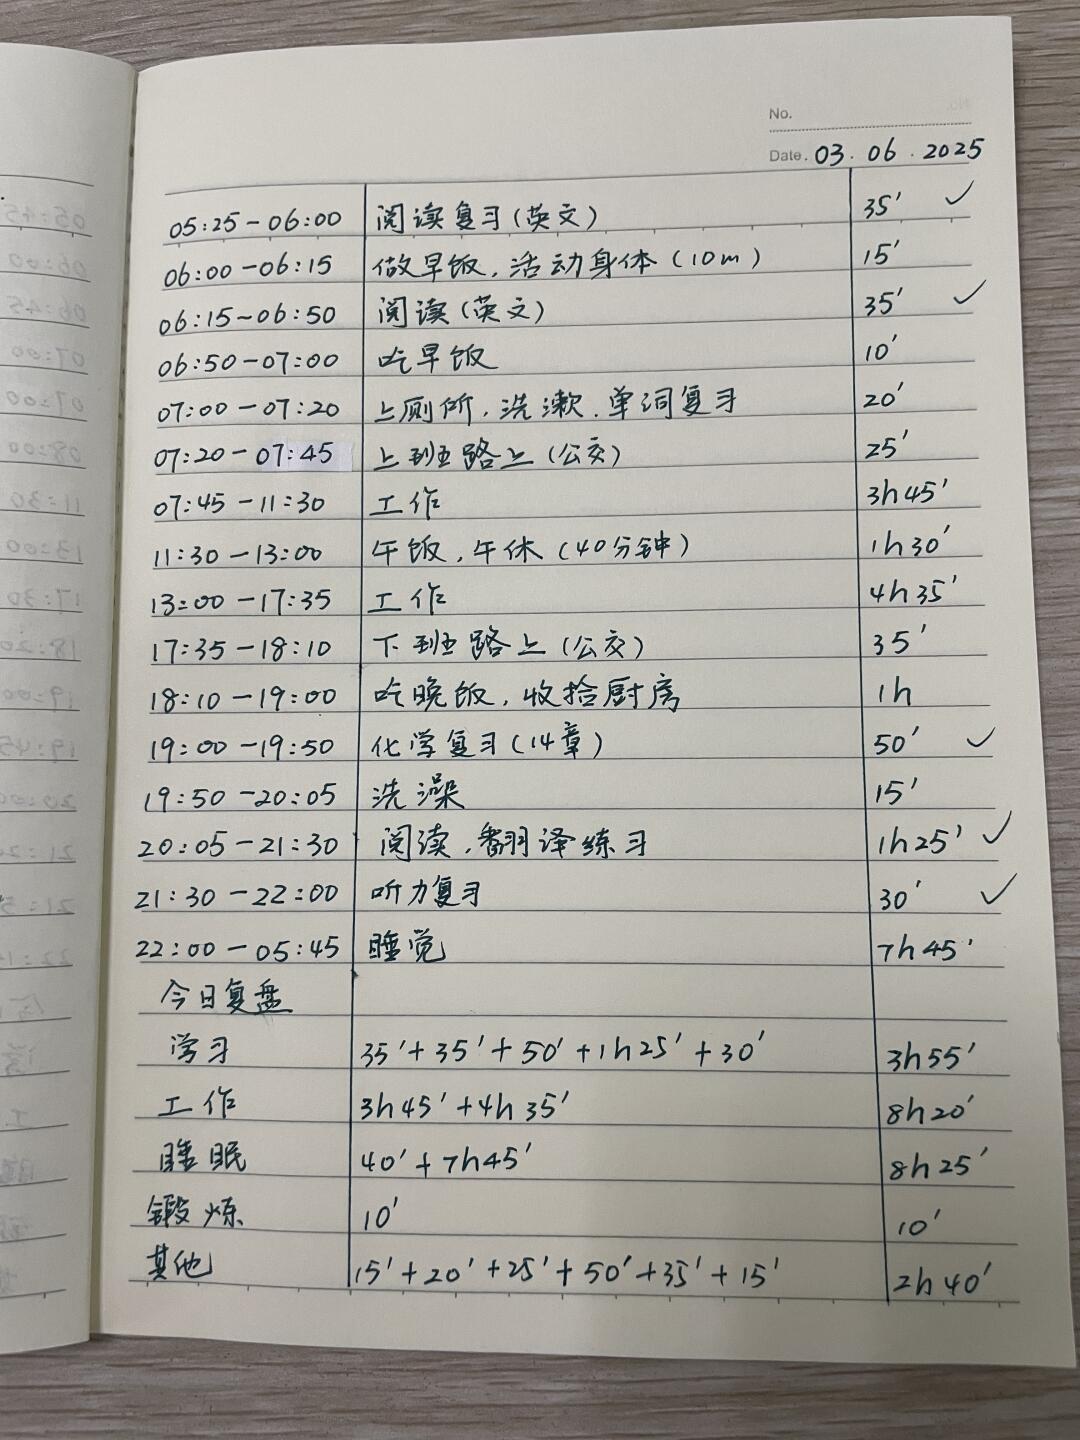 No.
Date. 03.06.2025
05:25-06:00 阅读复习(英文) 35' ✓
06:00-06:15 做早饭,活动身体(10m) 15'
06:15~06:50 阅读(英文) 35' ✓
06:50-07:00 吃早饭 10'
07:00-07:20 上厕所,洗漱,单词复习 20'
07:20-07:45 上班路上(公交) 25'
07:45-11:30 工作 3h45'
11:30-13:00 午饭,午休(40分钟) 1h30'
13:00-17:35 工作 4h35'
17:35-18:10 下班路上(公交) 35'
18:10-19:00 吃晚饭,收拾厨房 1h
19:00-19:50 化学复习(14章) 50' ✓
19:50-20:05 洗澡 15'
20:05-21:30 阅读,翻译练习 1h25' ✓
21:30-22:00 听力复习 30' ✓
22:00-05:45 睡觉 7h45'
今日复盘
学习 35'+35'+50'+1h25'+30' 3h55'
工作 3h45'+4h35' 8h20'
睡眠 40'+7h45' 8h25'
锻炼 10' 10'
其他 15'+20'+25'+50'+35'+15' 2h40'